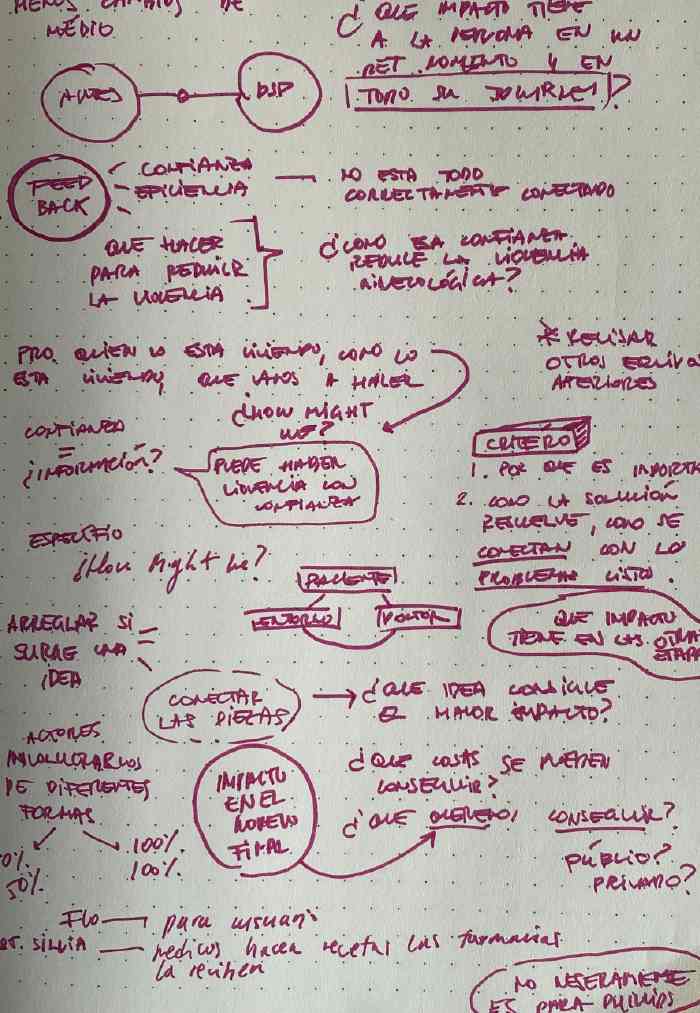 MENOS CAMBIOS DE
MEDIO
¿QUE IMPACTO TIENE
A LA PERSONA EN UN
MOMENTO Y EN
TODO SU
ANTES
DSP
FEED
BACK
CONFIANZA
EFICIENCIA
NO ESTA TODO
CORRECTAMENTE CONECTADO
QUE HACER
PARA REDUCIR
LA VIOLENCIA
¿COMO ESA CONFIANZA
REDUCE LA VIOLENCIA
GINECOLÓGICA?
PRO. QUIEN LO ESTA VIVIENDO, COMO LO
ESTA VIVIENDO, QUE VAMOS A HACER
* REVISAR
OTROS EQUIPOS
ANTERIORES
¿HOW MIGHT
WE?
CONFIANZA
=
¿INFORMACIÓN?
PUEDE HABER
VIOLENCIA CON
CONFIANZA
CRITERO
1. POR QUE ES IMPORTA
2. COMO LA SOLUCIÓN
RESUELVE, COMO SE
CONECTAN CON LO
PROBLEMAS VISTO.
ESPECIFIO
¿How Might We?
PACIENTE
ENTORNO
DOCTOR
QUE IMPACTO
TIENE EN LAS OTRA
ETAPA
ARREGLAR SI
SURGE UNA
IDEA
CONECTAR
LAS PIEZAS
¿QUE IDEA CONSIGUE
EL MAYOR IMPACTO?
ACTORES
INVOLUCRARLOS
DE DIFERENTES
FORMAS
0%.
50%.
100%.
100%.
IMPACTO
EN EL
MODELO
FINAL
¿QUE COSAS SE PUEDEN
CONSEGUIR?
¿QUE QUEREMOS CONSEGUIR?
PÚBLIO?
PRIVADO?
Flo — para usuari
SILVIA — medicos hacen recetas las farmacias
la reciben
NO NESERAMENTE
ES PARA PHILLIPS